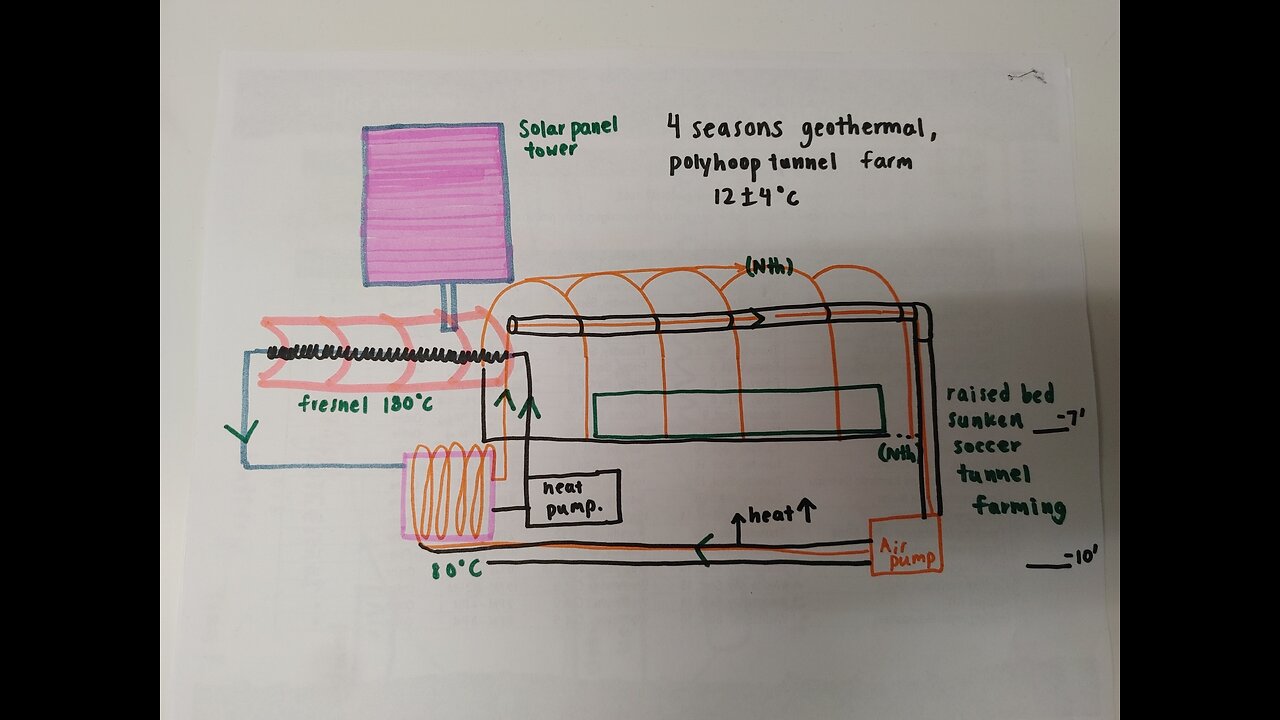 Solar panel
tower
4 seasons geothermal,
polyhoop tunnel farm
12±4°C
(Nth)
fresnel 180°C
raised bed
sunken -7'
soccer
tunnel
farming
(Nth)
heat
pump.
↑heat↑
Air
pump
80°C
-10'